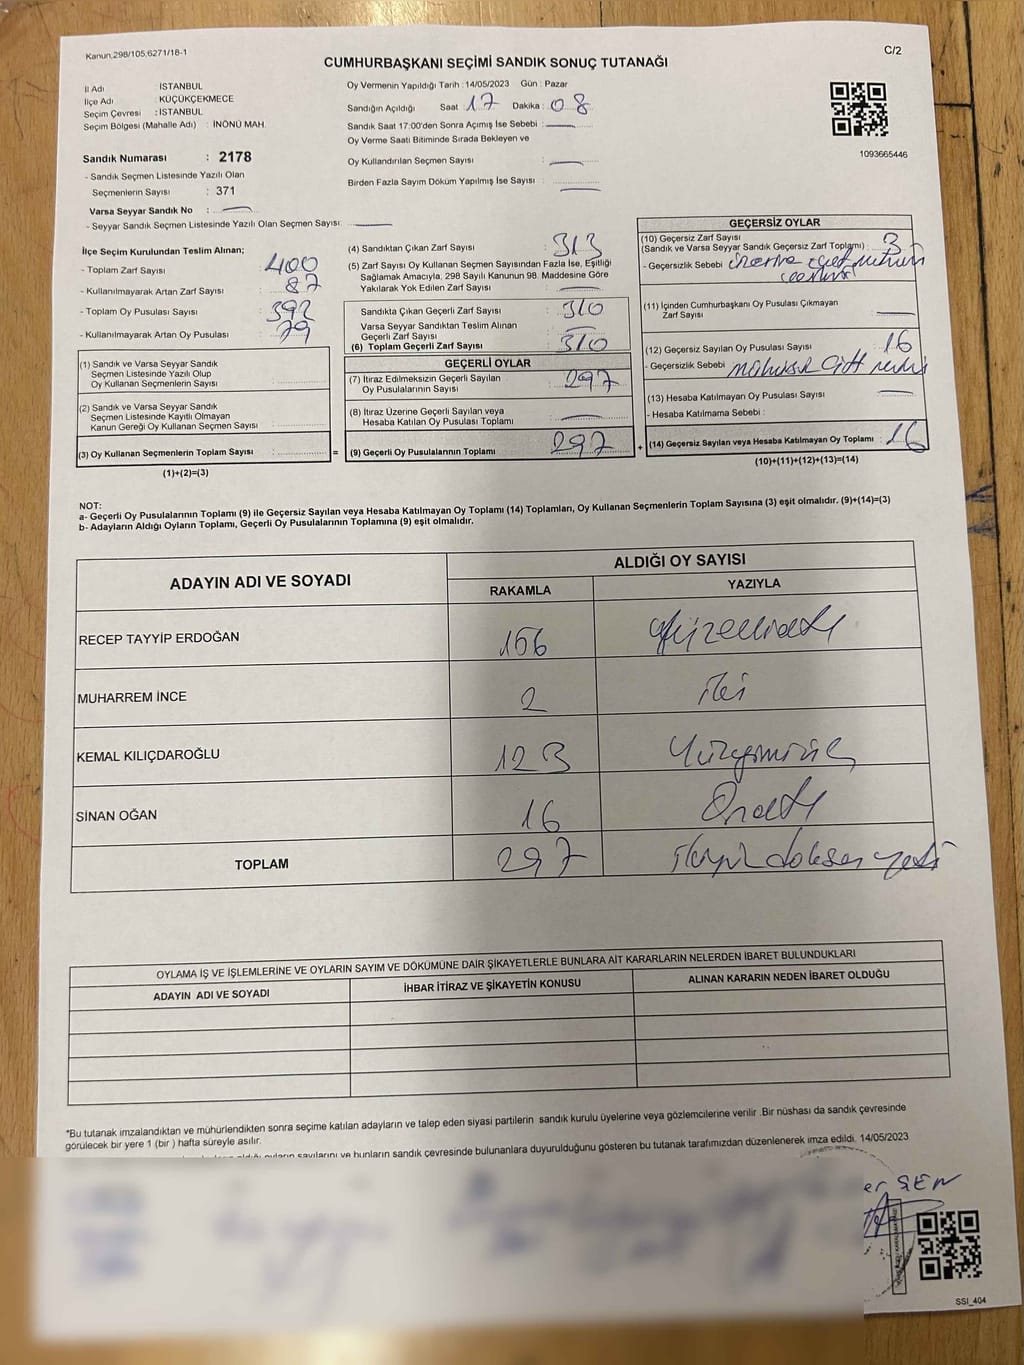 Kanun,298/105,6271/18-1
C/2
CUMHURBAŞKANI SEÇİMİ SANDIK SONUÇ TUTANAĞI
İl Adı İSTANBUL
İlçe Adı : KÜÇÜKÇEKMECE
Seçim Çevresi : İSTANBUL
Seçim Bölgesi (Mahalle Adı) : İNÖNÜ MAH.
Sandık Numarası : 2178
- Sandık Seçmen Listesinde Yazılı Olan
Seçmenlerin Sayısı : 371
Varsa Seyyar Sandık No :
- Seyyar Sandık Seçmen Listesinde Yazılı Olan Seçmen Sayısı:
Oy Vermenin Yapıldığı Tarih : 14/05/2023 Gün : Pazar
Sandığın Açıldığı Saat : 17 Dakika : 08
Sandık Saat 17:00'den Sonra Açımış İse Sebebi :
Oy Verme Saati Bitiminde Sırada Bekleyen ve
Oy Kullandırılan Seçmen Sayısı :
Birden Fazla Sayım Döküm Yapılmış İse Sayısı :
1093665446
İlçe Seçim Kurulundan Teslim Alınan;
- Toplam Zarf Sayısı : 400
- Kullanılmayarak Artan Zarf Sayısı : 87
- Toplam Oy Pusulası Sayısı : 392
- Kullanılmayarak Artan Oy Pusulası : 79
(1) Sandık ve Varsa Seyyar Sandık
Seçmen Listesinde Yazılı Olup
Oy Kullanan Seçmenlerin Sayısı :
(2) Sandık ve Varsa Seyyar Sandık
Seçmen Listesinde Kayıtlı Olmayan
Kanun Gereği Oy Kullanan Seçmen Sayısı :
(3) Oy Kullanan Seçmenlerin Toplam Sayısı : =
(1)+(2)=(3)
(4) Sandıktan Çıkan Zarf Sayısı : 313
(5) Zarf Sayısı Oy Kullanan Seçmen Sayısından Fazla İse, Eşitliği
Sağlamak Amacıyla, 298 Sayılı Kanunun 98. Maddesine Göre
Yakılarak Yok Edilen Zarf Sayısı :
Sandıkta Çıkan Geçerli Zarf Sayısı : 310
Varsa Seyyar Sandıktan Teslim Alınan
Geçerli Zarf Sayısı :
(6) Toplam Geçerli Zarf Sayısı : 310
GEÇERLİ OYLAR
(7) İtiraz Edilmeksizin Geçerli Sayılan
Oy Pusulalarının Sayısı : 297
(8) İtiraz Üzerine Geçerli Sayılan veya
Hesaba Katılan Oy Pusulası Toplamı :
(9) Geçerli Oy Pusulalarının Toplamı : 297 +
GEÇERSİZ OYLAR
(10) Geçersiz Zarf Sayısı
(Sandık ve Varsa Seyyar Sandık Geçersiz Zarf Toplamı) : 3
- Geçersizlik Sebebi :
(11) İçinden Cumhurbaşkanı Oy Pusulası Çıkmayan
Zarf Sayısı :
(12) Geçersiz Sayılan Oy Pusulası Sayısı : 16
- Geçersizlik Sebebi
(13) Hesaba Katılmayan Oy Pusulası Sayısı :
- Hesaba Katılmama Sebebi :
(14) Geçersiz Sayılan veya Hesaba Katılmayan Oy Toplamı : 16
(10)+(11)+(12)+(13)=(14)
NOT:
a- Geçerli Oy Pusulalarının Toplamı (9) ile Geçersiz Sayılan veya Hesaba Katılmayan Oy Toplamı (14) Toplamları, Oy Kullanan Seçmenlerin Toplam Sayısına (3) eşit olmalıdır. (9)+(14)=(3)
b- Adayların Aldığı Oyların Toplamı, Geçerli Oy Pusulalarının Toplamına (9) eşit olmalıdır.
ADAYIN ADI VE SOYADI
ALDIĞI OY SAYISI
RAKAMLA YAZIYLA
RECEP TAYYİP ERDOĞAN 156 Yüzelliatı
MUHARREM İNCE 2 iki
KEMAL KILIÇDAROĞLU 123 Yüzyirmiüç
SİNAN OĞAN 16 Onaltı
TOPLAM 297 ikiyüz doksan yedi
OYLAMA İŞ VE İŞLEMLERİNE VE OYLARIN SAYIM VE DÖKÜMÜNE DAİR ŞİKAYETLERLE BUNLARA AİT KARARLARIN NELERDEN İBARET BULUNDUKLARI
ADAYIN ADI VE SOYADI İHBAR İTİRAZ VE ŞİKAYETİN KONUSU ALINAN KARARIN NEDEN İBARET OLDUĞU
*Bu tutanak imzalandıktan ve mühürlendikten sonra seçime katılan adayların ve talep eden siyasi partilerin sandık kurulu üyelerine veya gözlemcilerine verilir .Bir nüshası da sandık çevresinde
görülecek bir yere 1 (bir ) hafta süreyle asılır.
oyların sayılarını ve bunların sandık çevresinde bulunanlara duyurulduğunu gösteren bu tutanak tarafımızdan düzenlenerek imza edildi. 14/05/2023
er ŞEN
SSI_404